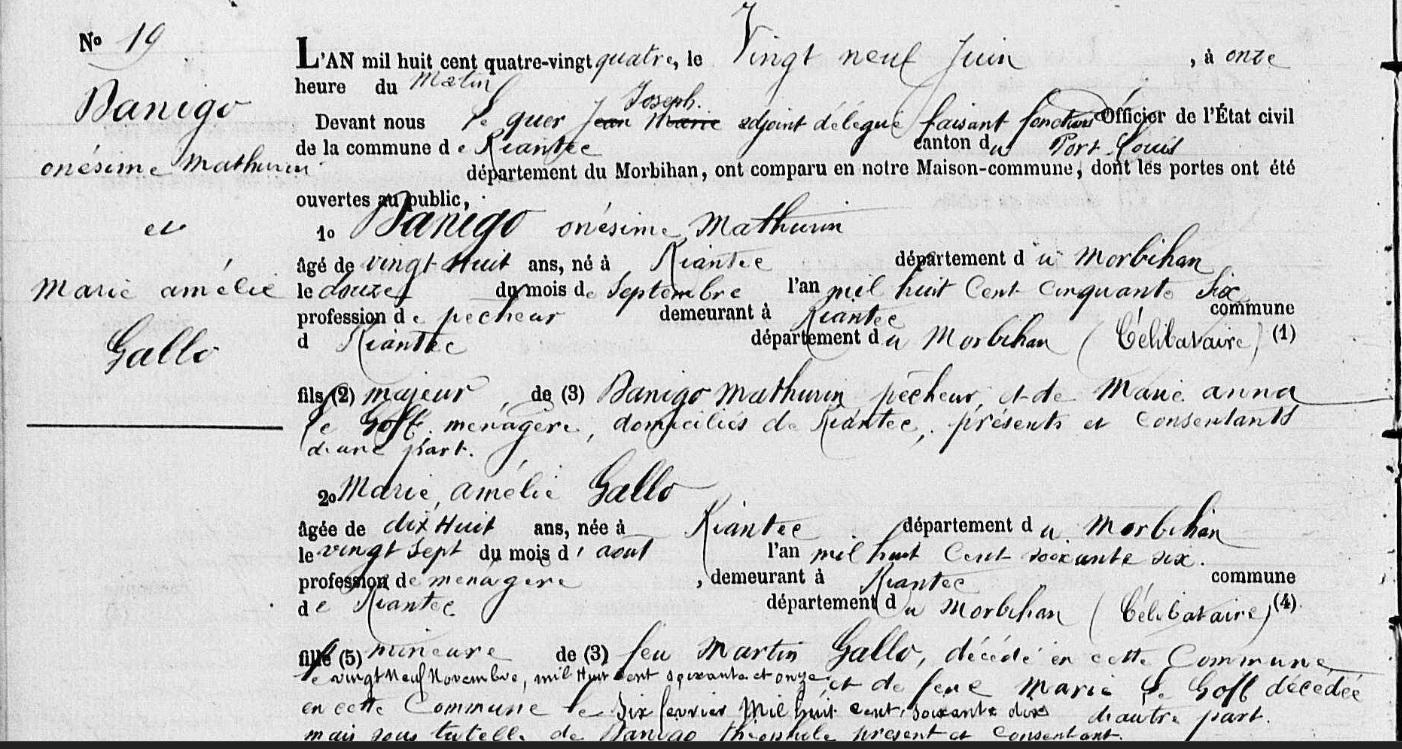 No 19
Danigo
onésime Mathurin
et
Marie amélie
Gallo
L'AN mil huit cent quatre-vingt quatre, le Vingt neuf Juin , à onze
heure du Matin
Joseph.
Devant nous Le quer Jean Marie adjoint délégué faisant fonctions Officier de l'État civil
de la commune d e Riantec canton du Port Louis
département du Morbihan, ont comparu en notre Maison-commune, dont les portes ont été
ouvertes au public,
1o Danigo onésime Mathurin
âgé de vingt Huit ans, né à Riantec département d u Morbihan
le douze du mois de Septembre l'an mil huit Cent Cinquante Six
profession d e pêcheur demeurant à Riantec commune
d Riantec département d u Morbihan (Célibataire) (1)
fils (2) majeur , de (3) Danigo Mathurin pêcheur, et de Marie anna
Le Goff ménagère, domiciliés de Riantec, présents et Consentants
d'une part.
2o Marie, amélie Gallo
âgée de dix Huit ans, née à Riantec département d u Morbihan
le vingt Sept du mois d' aout l'an mil huit Cent soixante six.
profession de ménagère , demeurant à Riantec commune
d e Riantec département d u Morbihan (Célibataire) (4)
fille (5) mineure de (3) feu Martin Gallo, décédé en cette Commune
le vingt Neuf Novembre, mil Huit cent soixante et onze, et de feue Marie Le Goff décédée
en cette Commune le Six fevrier Mil huit cent, soixante dix d'autre part.
mais sous tutelle de Danigo théophile présent et consentant.